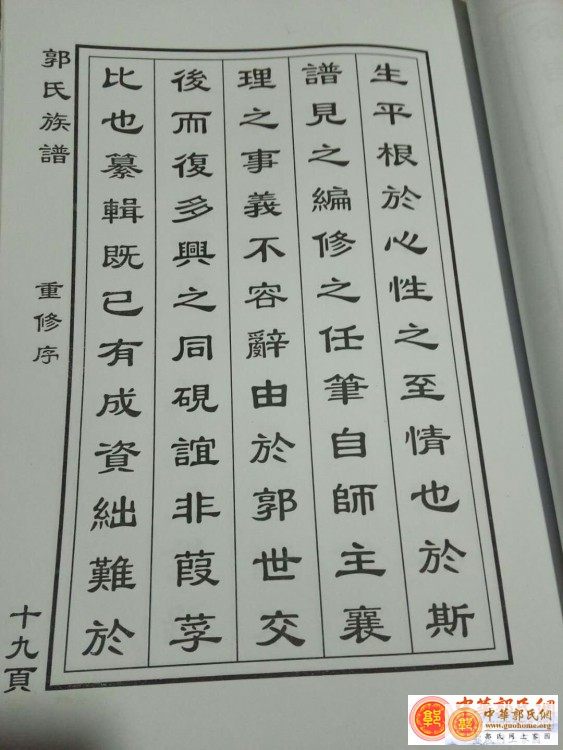 生平根於心性之至情也於斯
譜見之編修之任筆自師主襄
理之事義不容辭由於郭世交
後而復多興之同硯誼非葭莩
比也纂輯既已有成資絀難於
郭氏族譜
重修序
十九頁
中華郭氏網
www.guohome.org
郭氏網上家園